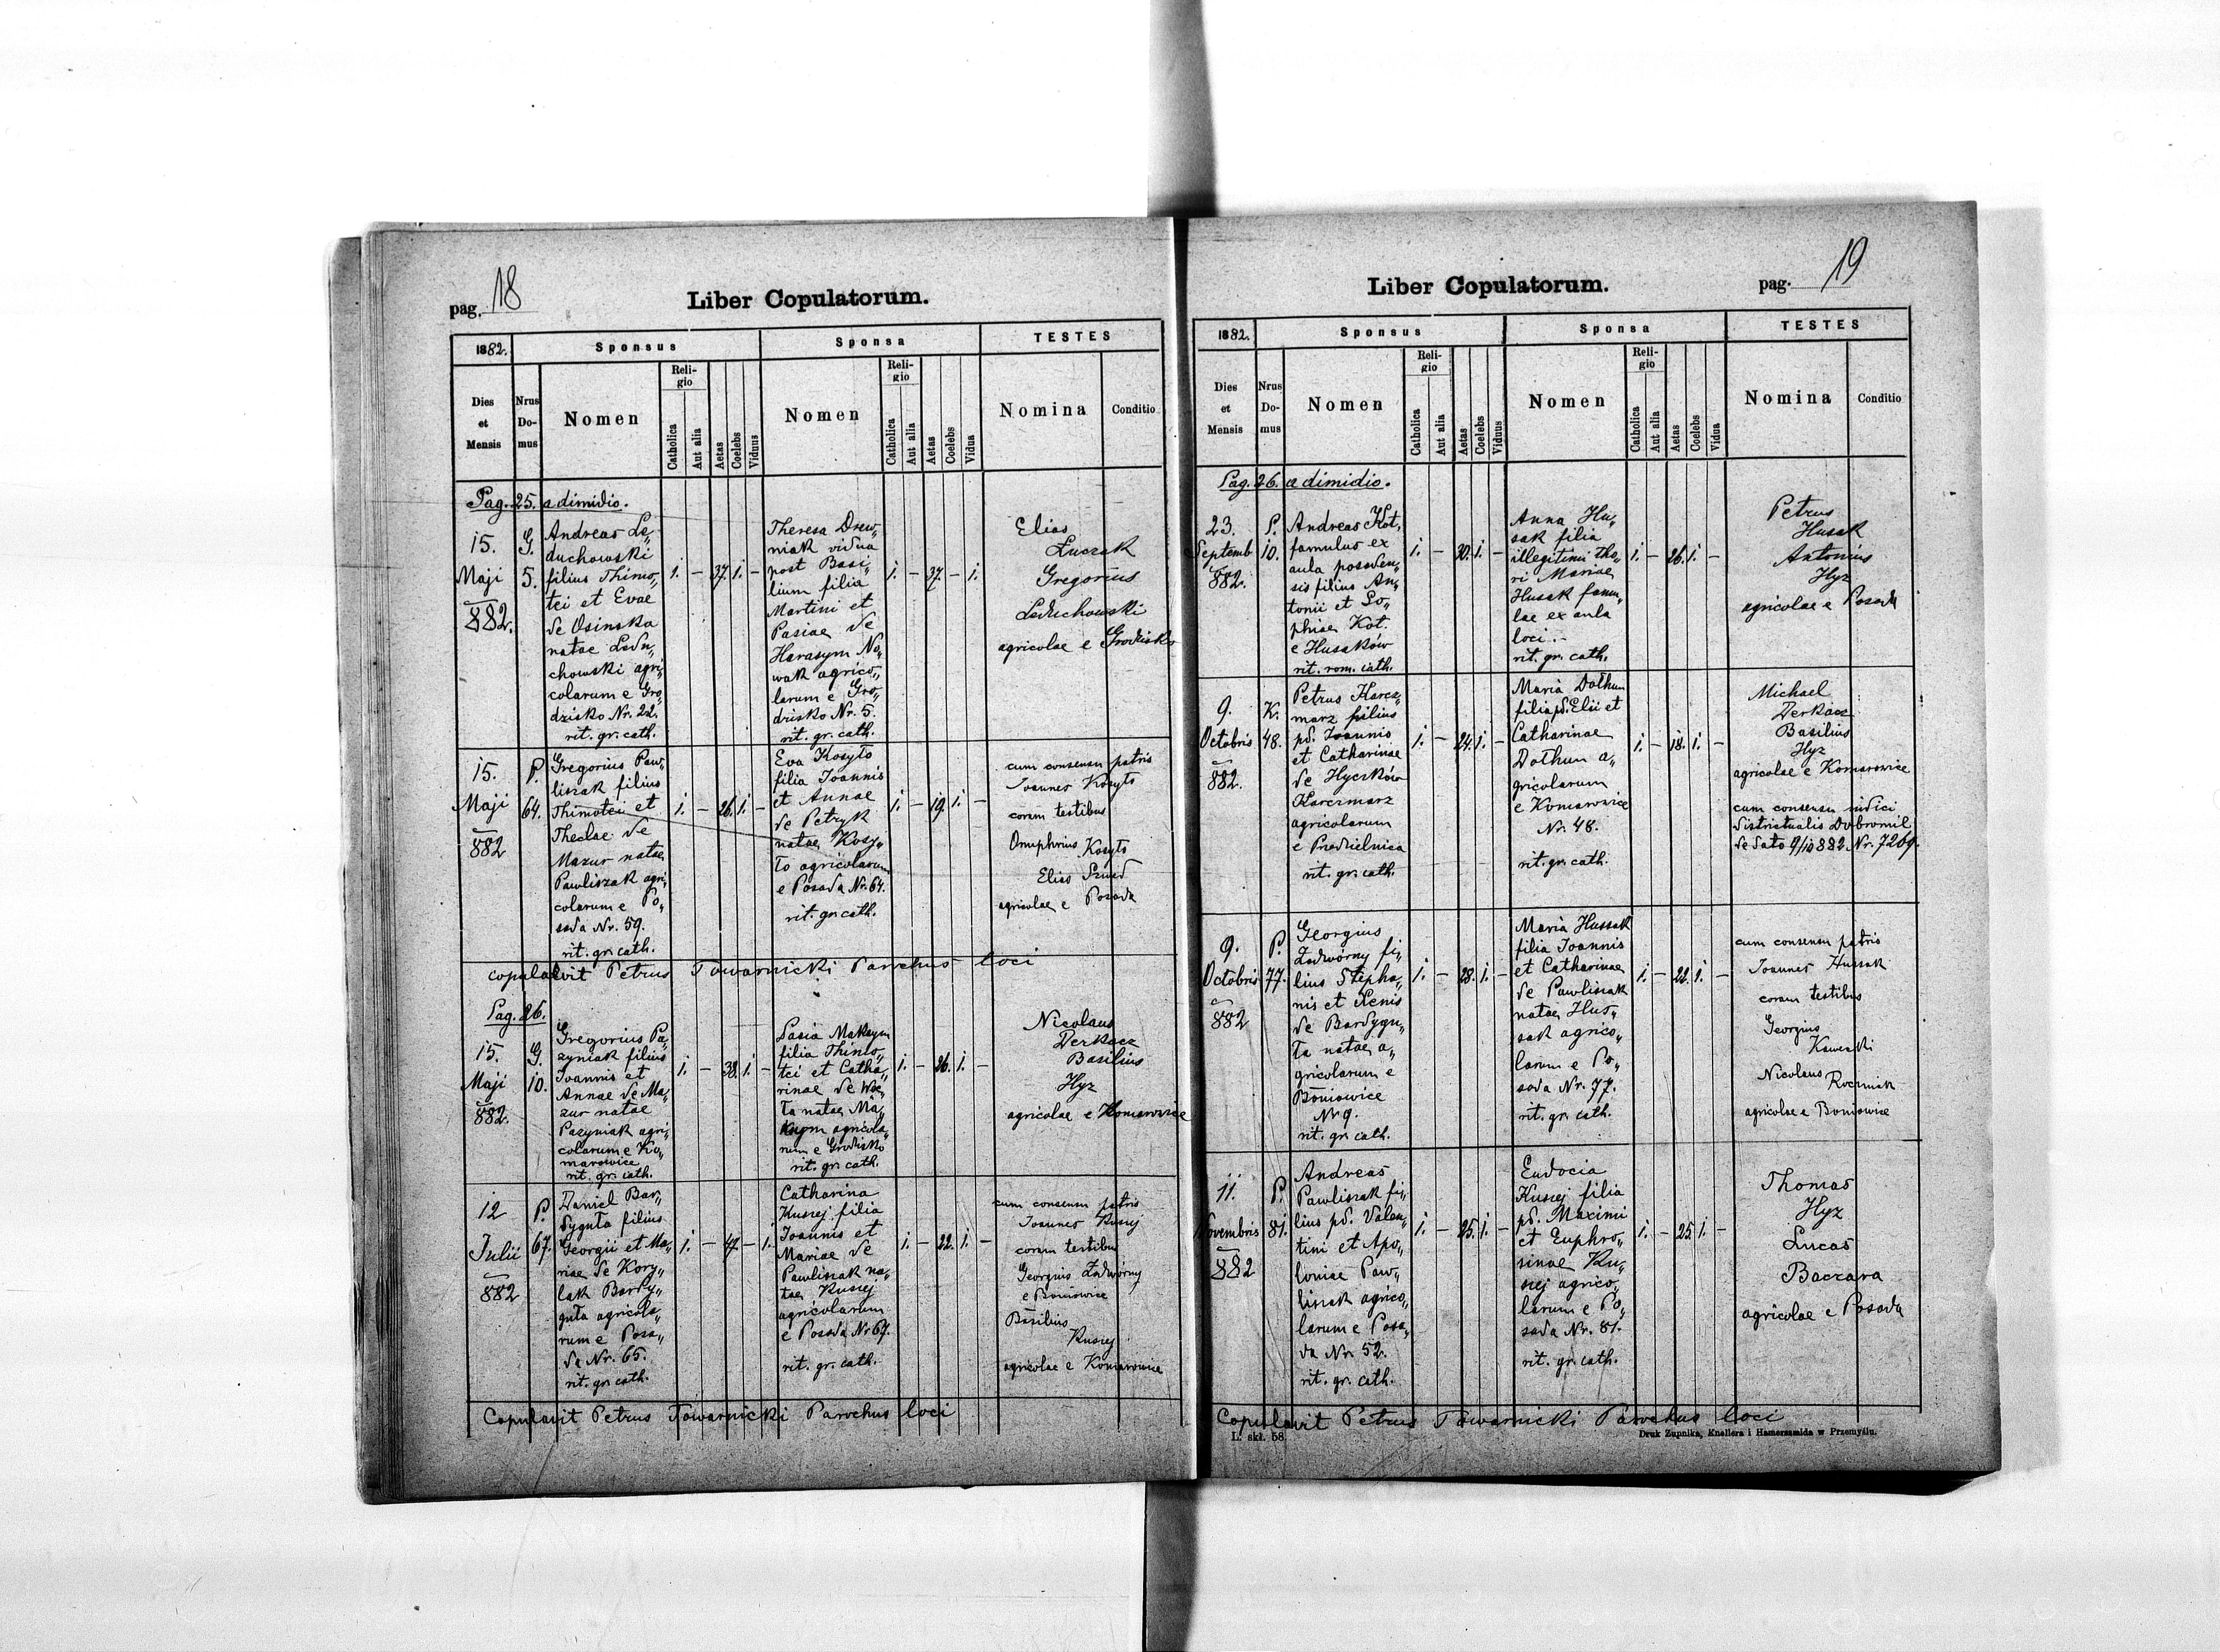 pag. 18
Liber Copulatorum.
1882.
Sponsus
Sponsa
TESTES
Dies et Mensis
Nrus Do-mus
Nomen
Reli-gio
Catholica
Aut alia
Aetas
Coelebs
Viduus
Nomen
Reli-gio
Catholica
Aut alia
Aetas
Coelebs
Vidua
Nomina
Conditio
Pag. 25. a dimidio.
15.
Maji
882.
G.
5.
Andreas Le„
duchowski
filius Thimo„
tei et Evae
de Osinska
natae Ledu„
chowski agri„
colarum e Gro„
dzisko Nr. 22.
rit. gr. cath.
1. — 37. 1. —
Theresa Drew„
niak vidua
post Basi„
lium filia
Martini et
Pasiae de
Harasym No„
wak agrico„
larum e Gro„
dzisko Nr. 5.
rit. gr. cath.
1. — 37. — 1.
Elias
Łuczak
Gregorius
Leduchowski
agricolae e Grodzisko
15.
Maji
882
P.
64.
Gregorius Paw„
liszak filius
Thimotei et
Theclae de
Mazur natae
Pawliszak agri„
colarum e Po„
sada Nr. 59.
rit. gr. cath.
1. — 26. 1. —
Eva Kosyto
filia Joannis
et Annae
de Petryk
natae Kosy„
to agricolarum
e Posada Nr. 64.
rit. gr. cath.
1. — 19. 1. —
cum consensu patris
Joannes Kosyto
coram testibus
Onuphrius Kosyto
Elias Szwed
agricolae e Posada
copulavit Petrus Towarnicki Parochus loci
Pag. 26.
15.
Maji
882.
G.
10.
Gregorius Pa„
zyniak filius
Joannis et
Annae de Ma„
zur natae
Pazyniak agri„
colarum e Ko„
marowice
rit. gr. cath.
1. — 38. 1. —
Pasia Maksym
filia Thimo„
tei et Catha„
rinae de
ta natae Ma„
ksym agricola„
rum e Grodzisko
rit. gr. cath.
1. — 26. 1. —
Nicolaus
Derkacz
Basilius
Hyz
agricolae e Komarowice
12
Julii
882
P.
67.
Daniel Bar„
dyguła filius
Georgii et Ma„
riae de Kory„
lak Bardy„
guła agricola„
rum e Posa„
da Nr. 65.
rit. gr. cath.
1. — 47. — 1.
Catharina
Kusiej filia
Joannis et
Mariae de
Pawliszak na„
tae Kusiej
agricolarum
e Posada Nr 67.
rit. gr. cath.
1. — 22. 1. —
cum consensu patris
Joannes Kusiej
coram testibus
Georgius Zadworny
e Boniowice
Basilius
Kusiej
agricolae e Komarowice
Copulavit Petrus Towarnicki Parochus loci
Liber Copulatorum.
pag. 19
1882.
Sponsus
Sponsa
TESTES
Dies et Mensis
Nrus Do-mus
Nomen
Reli-gio
Catholica
Aut alia
Aetas
Coelebs
Viduus
Nomen
Reli-gio
Catholica
Aut alia
Aetas
Coelebs
Vidua
Nomina
Conditio
Pag. 26. a dimidio.
23.
Septemb
882.
P.
10.
Andreas Kot„
famulus ex
aula posaden„
sis filius An„
tonii et So„
phiae Kot.
e Husaków
rit. rom. cath.
1. — 30. 1. —
Anna Hu„
sak filia
illegitimi tho„
ri Mariae
Husak famu„
lae ex aula
loci. -
rit. gr. cath.
1. — 26. 1. —
Petrus
Husak
Antonius
Hyz
agricolae e Posada
9.
Octobris
882.
K.
48.
Petrus Karcz„
marz filius
pd. Joannis
et Catharinae
de Hyczków
Karczmarz
agricolarum
e Przedzielnica
rit. gr. cath.
1. — 24. 1. —
Maria Dołhun
filia pd. Elii et
Catharinae
Dołhun a„
gricolarum
e Komarowice
Nr. 48.
rit. gr. cath.
1. — 18. 1. —
Michael
Derkacz
Basilius
Hyz
agricolae e Komarowice
cum consensu judici
districtualis Dobromil
de dato 9/10 882 Nr. 7269.
9.
Octobris
882
P.
77.
Georgius
Zadworny fi„
lius Stepha„
nis et Xenis
de Bardygu„
ła natae a„
gricolarum e
Boniowice
Nr 9.
rit. gr. cath.
1. — 28. 1. —
Maria Hussak
filia Joannis
et Catharinae
de Pawliszak
natae Hus„
sak agrico„
larum e Po„
sada Nr. 77.
rit. gr. cath.
1. — 22. 1. —
cum consensu patris
Joannes Hussak
coram testibus
Georgius
Nicolaus
agricolae e Boniowice
11.
Novembris
882
P.
81.
Andreas
Pawliszak fi„
lius pd. Valen„
tini et Apo„
loniae Paw„
liszak agrico„
larum e Posa„
da Nr. 52.
rit. gr. cath.
1. — 25. 1. —
Eudocia
Kusiej filia
pd. Maximi
et Euphro„
sinae Ku„
siej agrico„
larum e Po„
sada Nr. 81.
rit. gr. cath.
1. — 25. 1. —
Thomas
Hyz
Lucas
Baczara
agricolae e Posada
Copulavit Petrus Towarnicki Parochus loci
L. skł. 58.
Druk Żupnika, Knollera i Hamerszmida w Przemyślu.